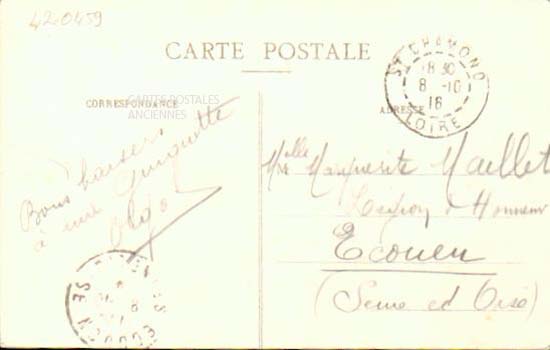 420459
CARTE POSTALE
ST CHAMOND
18 30
8 - 10
16
LOIRE
CORRESPONDANCE
CARTES POSTALES
ANCIENNES
ADRESSE
Bons baisers
à une
Olga
Mlle Marguerite Maillet
Légion d'Honneur
Ecouen
(Seine et Oise)